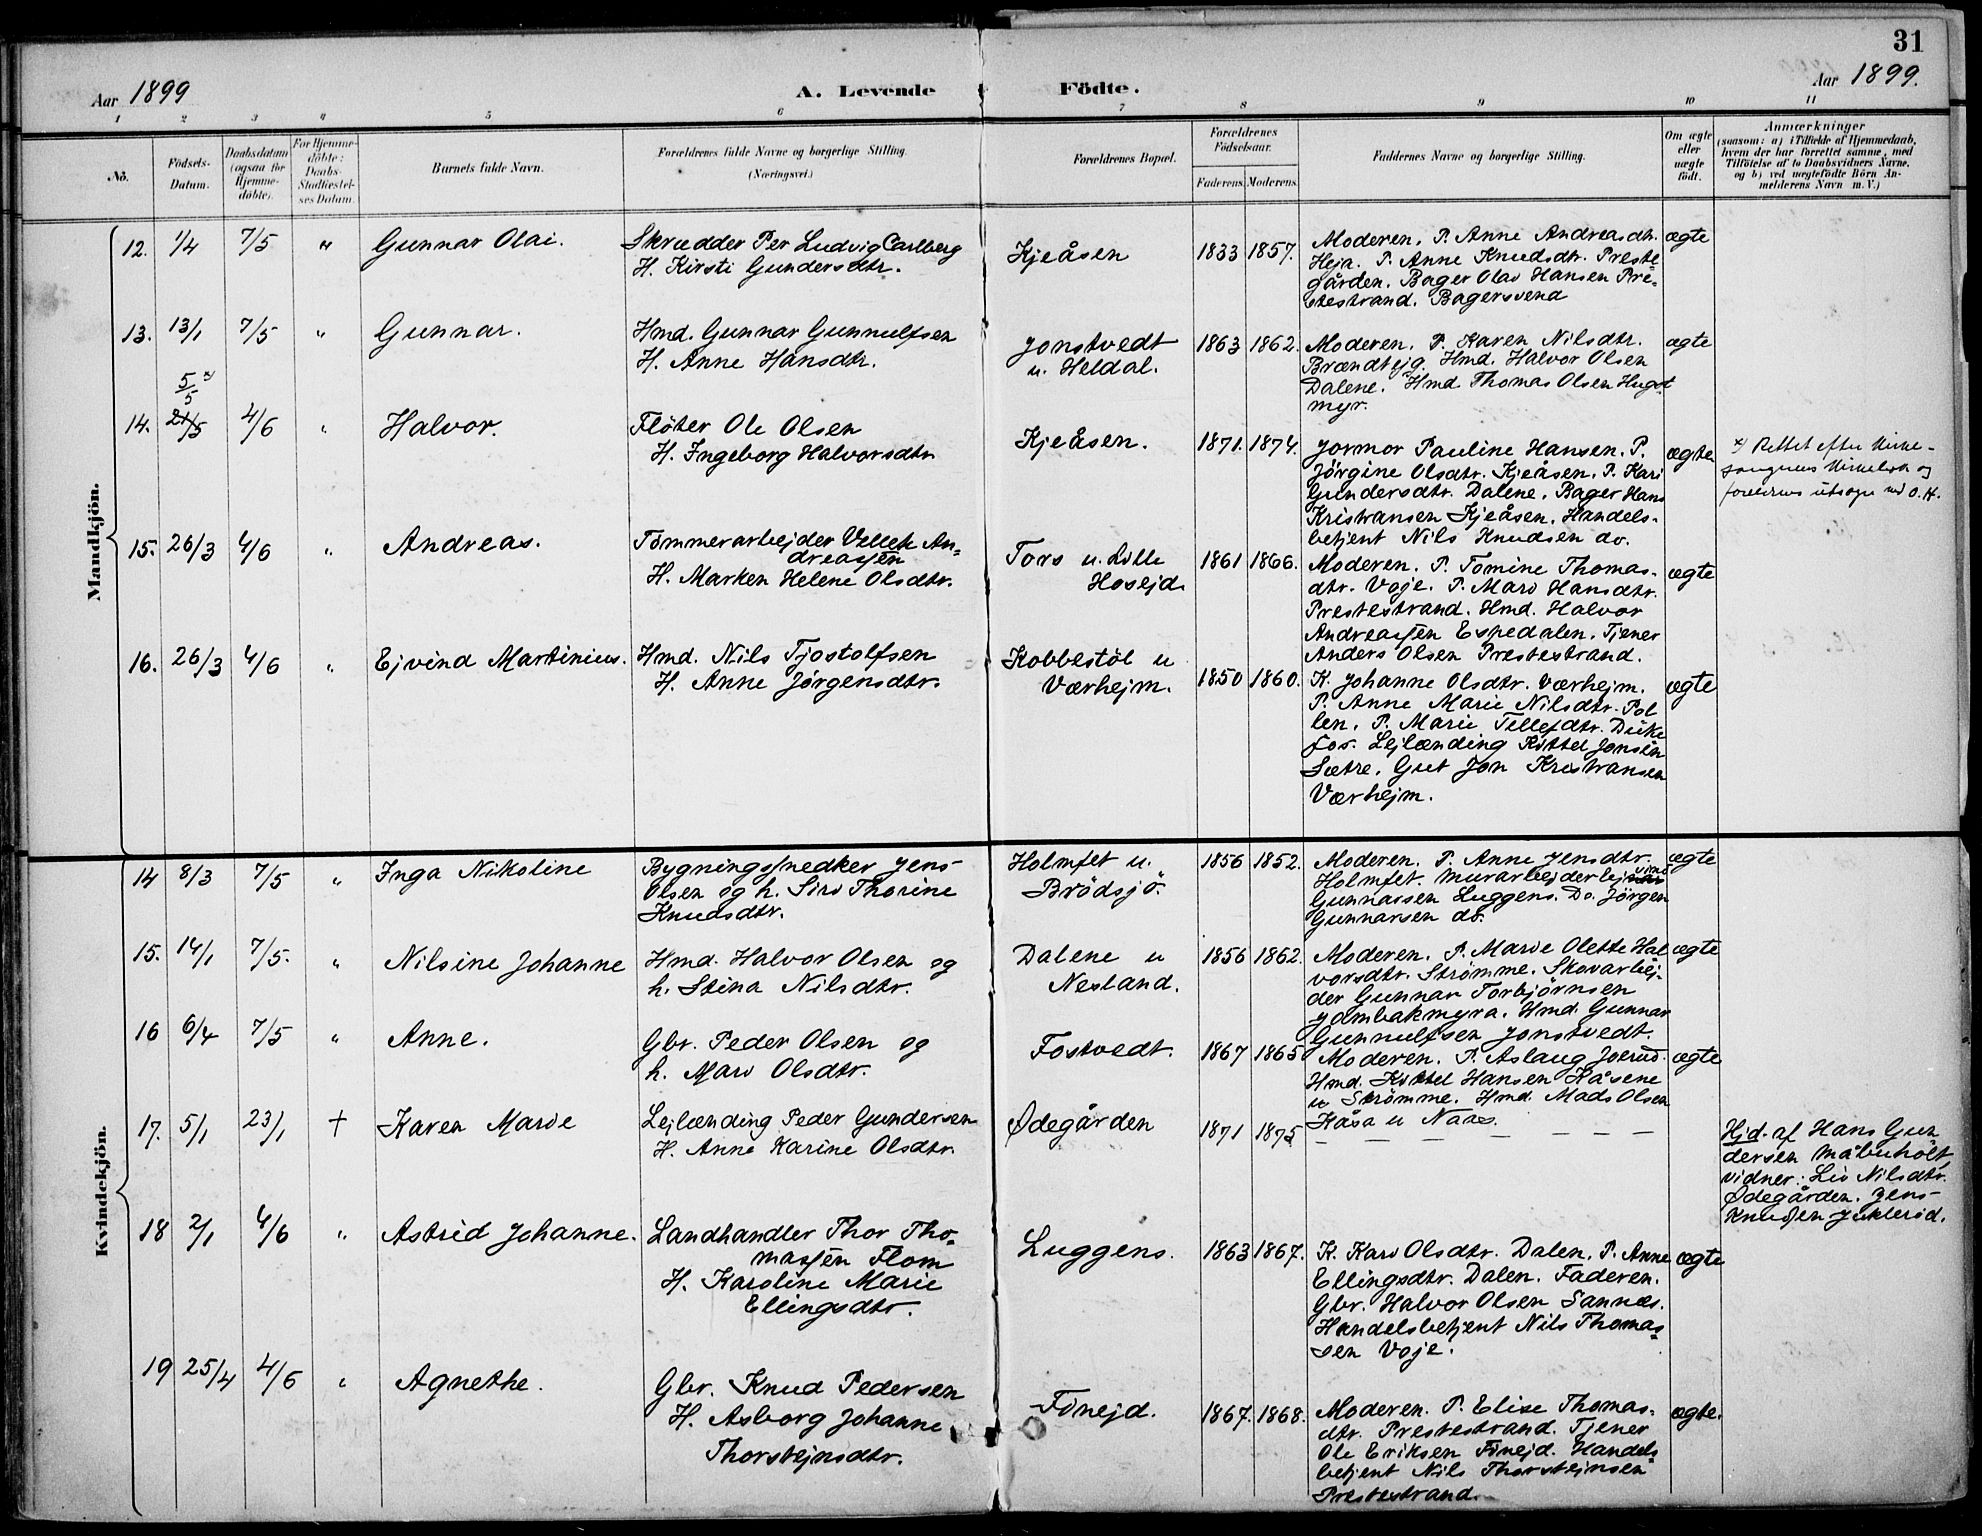 31
Aar 1899
A. Levende Födte.
Aar 1899.
1 2 3 4 5 6 7 8 9 10 11
No.
Födsels-
Datum.
Daabsdatum
(ogsaa for
Hjemme-
döbte).
For Hjemme-
döbte:
Daabs-
Stadfæstel-
ses Datum.
Barnets fulde Navn.
Forældrenes fulde Navne og borgerlige Stilling.
(Næringsvei.)
Forældrenes Bopæl.
Forældrenes
Fødselsaar.
Faderens. Moderens.
Faddernes Navne og borgerlige Stilling.
Om ægte
eller
uægte
født.
Anmærkninger
(saasom: a) i Tilfælde af Hjemmedaab,
hvem der har forrettet samme, med
Tilföielse af to Daabsvidners Navne,
og b) ved uægtefödte Börn An-
melderens Navn m. V.)
Mandkjön.
12. 1/4 7/5 " Gunnar Olai.
Skrædder Per Ludvig Carlberg
H. Kirsti Gundersdtr.
Kjeåsen 1833 1857.
Moderen. P. Anne Andreasdtr.
Heja. P. Anne Knudsdtr. Preste
gården. Bager Olav Hansen Pre-
stestrand. Bagersvend
ægte
13. 13/1 7/5 " Gunnar.
Hmd. Gunnar Gunnulfsen
H. Anne Hansdtr.
Jonstvedt
u. Heldal.
1863 1862.
Moderen. P. Karen Nilsdtr.
Brændhejg. Hmd. Halvor Olsen
Dalene. Hmd Thomas Olsen Hugst
myr.
ægte
5/5 x)
14. 21/5 4/6 " Halvor.
Flöter Ole Olsen
H. Ingeborg Halvorsdtr
Kjeåsen. 1871. 1874.
Jormor Pauline Hansen. P.
Jörgine Olsdtr. Kjeåsen. P. Kari
Gundersdtr. Dalene. Bager Hans
Kristiansen Kjeåsen. Handels-
betjent Nils Knudsen do.
ægte
x) Rettet efter Kirke-
sangerens Kirkebok og
foreldrenes utsagn ved O.H.
15. 26/3 4/6 " Andreas.
Tömmerarbejder Vellek An-
dreassen
H. Marken Helene Olsdtr.
Tors u. Lille
Hosejd.
1861 1866.
Moderen. P. Tomine Thomas-
dtr. Voje. P. Mari Hansdtr.
Prestestrand. Hmd. Halvor
Andreassen Espedalen. Tjener
Anders Olsen Prestestrand.
ægte
16. 26/3 4/6 " Ejvind Martinius.
Hmd. Nils Tjostolfsen
H. Anne Jörgensdtr.
Kobbestöl u
Værhejm.
1850 1860.
K. Johanne Olsdtr. Værhejm.
P. Anne Marie Nilsdtr. Pol
len. P. Marie Tellefdtr. Dirke
fos. Lejlænding Kittel Jonsen
Sætre. Gut Jon Kristiansen
Værhejm.
ægte
Kvindekjön.
14 8/3 7/5 " Inga Nikoline
Bygningssnedker Jens
Olsen og h. Siri Thorine
Knudsdtr.
Holmfet u.
Brödsjö.
1856 1852.
Moderen. P. Anne Jensdtr.
Holmfet. Murarbejder Ejvind
Gunnarsen Luggens. Do. Jörgen
Gunnarsen do.
ægte
15. 14/1 7/5. " Nilsine Johanne
Hmd. Halvor Olsen og
h. Stina Nilsdtr.
Dalene u
Nesland.
1856 1862.
Moderen. P. Marie Olette Hal
vorsdtr. Strømme. Skovarbej-
der Gunnar Torbjörnsen
Jombakmyra. Hmd. Gunnar
Gunnulfsen Jonstvedt.
ægte
16 6/4 7/5 " Anne.
Gbr. Peder Olsen og
h. Mari Olsdtr.
Fostvedt. 1867 1865
Moderen. P. Aslaug Joerud.
Hmd. Kittel Hansen Kåsene
u Strömme. Hmd. Mads Olsen
Kåsa u Naæs.
ægte
17. 5/1 23/1 † Karen Marie
Lejlænding Peder Gundersen
H. Anne Karine Olsdtr.
Ødegården 1871 1875
— — — — — — —
Hjd. af Hans Gun
dersen Måbuholt
vidner: Liv Nilsdtr.
Ødegården. Jens
Knudsen Juklerød.
18 2/1 4/6 " Astrid Johanne.
Landhandler Thor Tho-
massen Flom
H. Karoline Marie
Ellingsdtr.
Luggens. 1863 1867.
K. Kari Olsdtr. Dalen. P. Anne
Ellingsdtr. Dalen. Faderen.
Gbr. Halvor Olsen Sannæs.
Handelsbetjent Nils Thomas-
sen Voje.
ægte
19 25/4 4/6 " Agnethe.
Gbr. Knud Pedersen
H. Asborg Johanne
Thorstejnsdtr.
Finejd. 1867. 1868.
Moderen. P. Elise Thomas-
dtr. Prestestrand. Tjener
Ole Eriksen Finejd. Handels
betjent Nils Thorstejnsen
Prestestrand.
ægte.